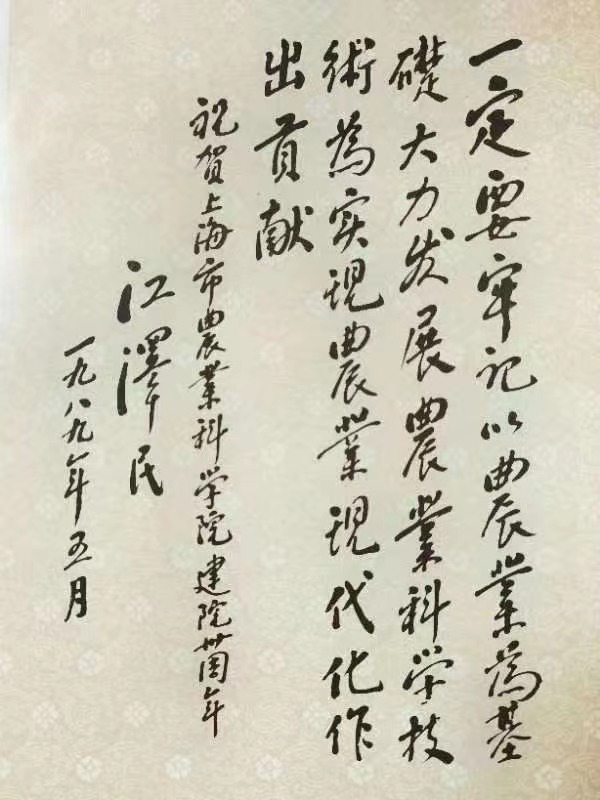 一定要牢记以農業為基
礎大力发展農業科学技
術為实現農業現代化作
出貢献
祝賀上海市農業科学院建院卅周年
江澤民
一九八九年五月